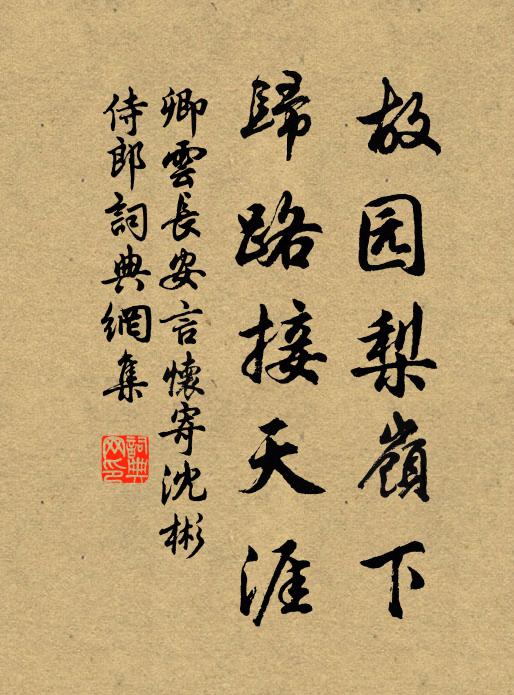 故园梨嶺下
歸路接天涯
卿雲長安言懷寄沈彬
侍郎詞典網集
詞典网印